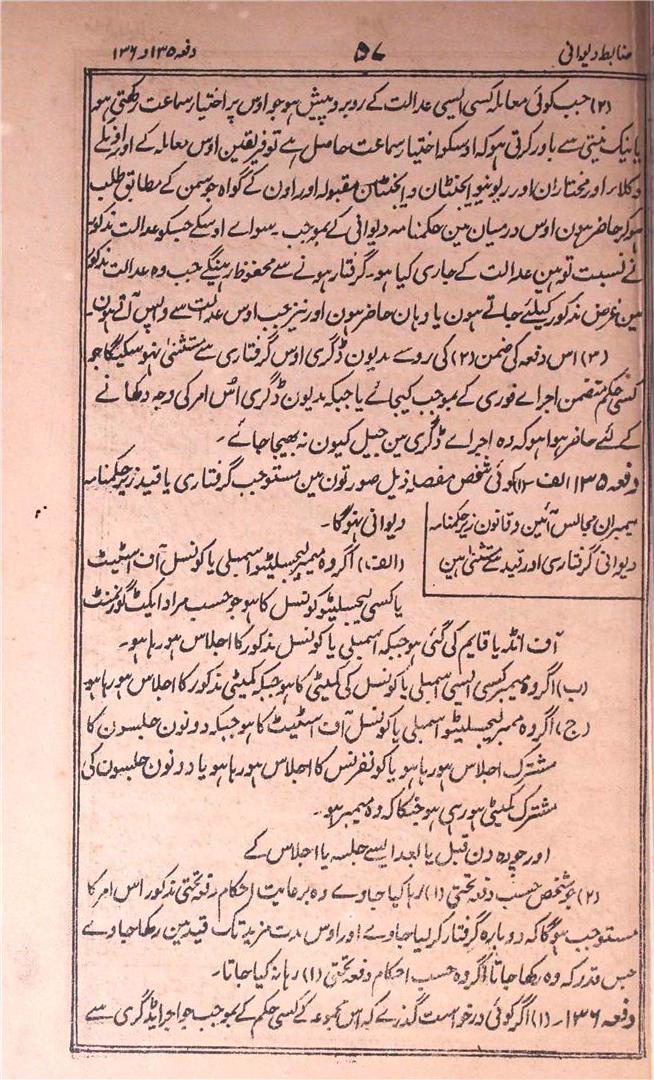 ضابط دیوانی ۵۷ دفعہ ۱۳۵ و ۱۳۶
(۲) جب کوئی معاملہ کسی ایسی عدالت کے روبرو پیش ہو جو اوس پر اختیار سماعت رکھتی ہو
یا نیک نیتی سے باور کرتی ہو کہ اوسکو اختیار سماعت حاصل ہے تو فریقین اوس معاملہ کے اور اونکے
وکلاء اور مختاران اور ریونیو ایجنٹان و ایجنٹان مقبولہ اور اون کے گواہ جو سمن کے مطابق طلب
ہوکر حاضر ہون اوس درمیان مین حکمنامہ دیوانی کے بموجب۔ سواے اوسکے جسکو عدالت مذکور
نے نسبت توہین عدالت کے جاری کیا ہو۔ گرفتار ہونے سے محفوظ رہینگے جب وہ عدالت مذکور
مین غرض مذکور کیلئے جاتے ہون یا وہان حاضر ہون اور نیز جب اوس عدالت سے واپس آتے ہون۔
(۳) اس دفعہ کی ضمن (۲) کی روسے مدیون ڈگری اوس گرفتاری سے مستثنٰی نہوسکیگا جو
کسی حکم متضمن اجراے فوری کے بموجب کیجائے یا جبکہ مدیون ڈگری اُس امر کی وجہ دکھانے
کے لئے حاضر ہوا ہو کہ وہ اجراے ڈگری مین جیل کیون نہ بھیجا جائے۔
دفعہ ۱۳۵ الف۔ (۱) کوئی شخص مفصلہ ذیل صورتون مین مستوجب گرفتاری یا قید زیر حکمنامہ
دیوانی نہوگا۔
ممبران مجالس آئین و قانون زیر حکمنامہ
دیوانی گرفتاری اور قید سے مستثنٰی ہین
(الف) اگر وہ ممبر لیجسلیٹو اسمبلی یا کونسل آف اسٹیٹ
یا کسی لیجسلیٹو کونسل کا ہو جو حسب مراد ایکٹ گورنمنٹ
آف انڈیا قایم کی گئی ہو جبکہ اسمبلی یا کونسل مذکور کا اجلاس ہو رہا ہو۔
(ب) اگر وہ ممبر کسی ایسی اسمبلی یا کونسل کی کمیٹی کا ہو جبکہ کمیٹی مذکور کا اجلاس ہو رہا ہو
(ج) اگر وہ ممبر لیجسلیٹو اسمبلی یا کونسل آف اسٹیٹ کا ہو جبکہ دونون جلسون کا
مشترک اجلاس ہو رہا ہو یا کونفرنس کا اجلاس ہو رہا ہو یا دونون جلسون کی
مشترک کمیٹی ہو رہی ہو جنکا کہ وہ ممبر ہو۔
اور چودہ دن قبل یا بعد ایسے جلسہ یا اجلاس کے
(۲) جو شخص حسب دفعہ تحتی (۱) رہا کیا جاوے وہ برعایت احکام دفعہ تحتی مذکور اس امر کا
مستوجب ہوگا کہ دوبارہ گرفتار کر لیا جاوے اور اوس مدت مزید تک قید مین رکھا جاوے
جس قدر کہ وہ رکھا جاتا اگر وہ حسب احکام دفعہ تحتی (۱) رہا نہ کیا جاتا۔
دفعہ ۱۳۶۔ (۱) اگر کوئی درخواست گذرے کہ اس مجموعہ کے کسی حکم کے بموجب جو اجراء ڈگری سے